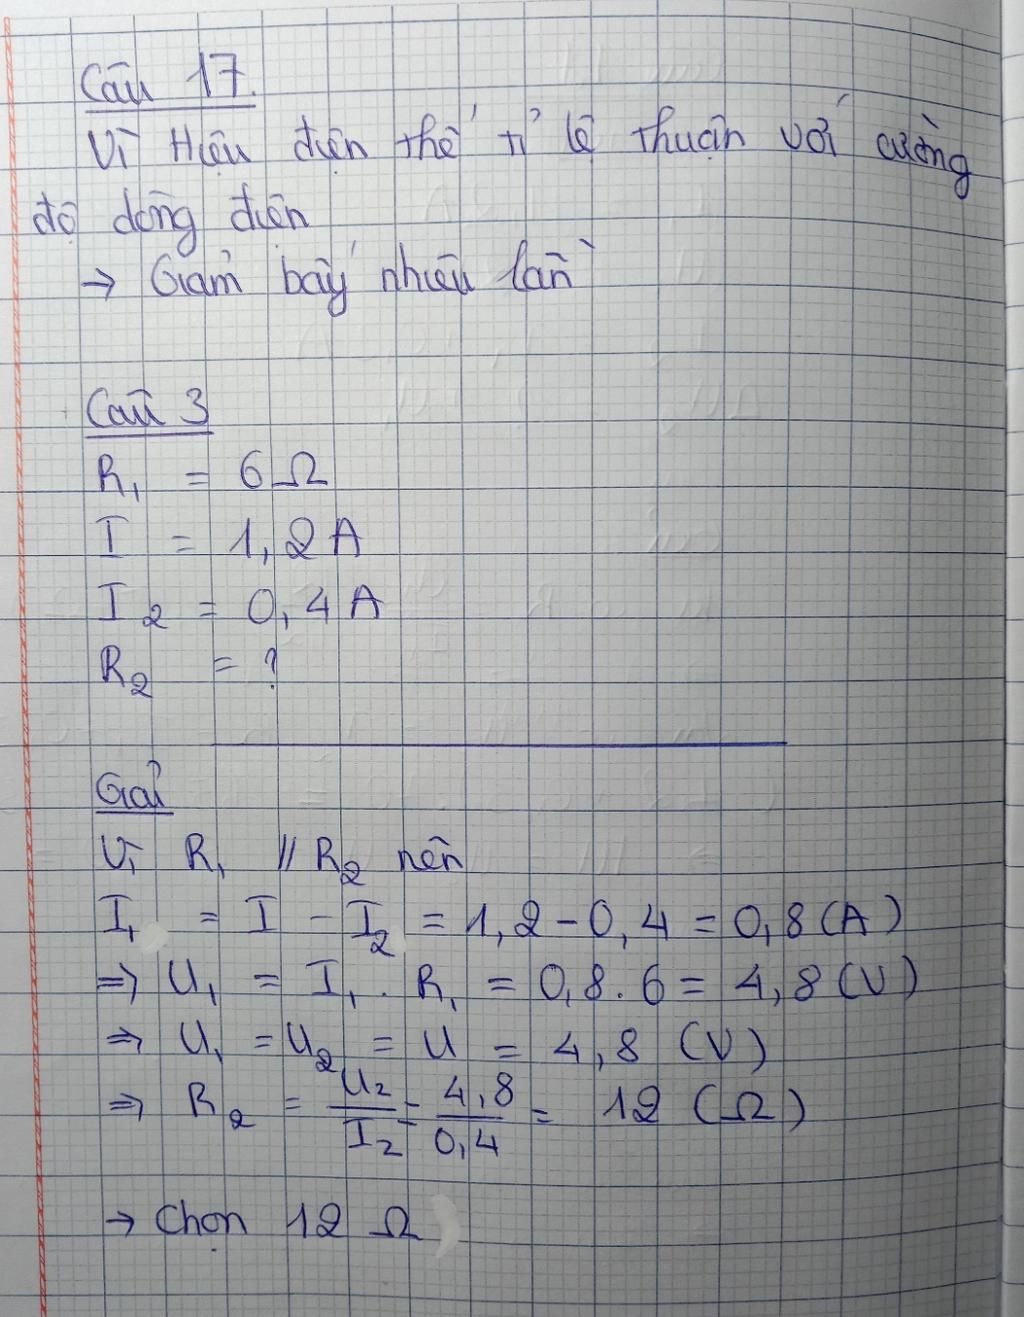 Câu 17.
Vì Hiệu điện thế tỉ lệ thuận với cường
độ dòng điện
→ Giảm bấy nhiêu lần
Câu 3
R₁ = 6 Ω
I = 1,2 A
I₂ = 0,4 A
R₂ = ?
Giải
Vì R₁ // R₂ nên
I₁ = I - I₂ = 1,2 - 0,4 = 0,8 (A)
⇒ U₁ = I₁ . R₁ = 0,8 . 6 = 4,8 (V)
⇒ U₁ = U₂ = U = 4,8 (V)
⇒ R₂ = U₂/I₂ = 4,8/0,4 = 12 (Ω)
→ Chọn 12 Ω